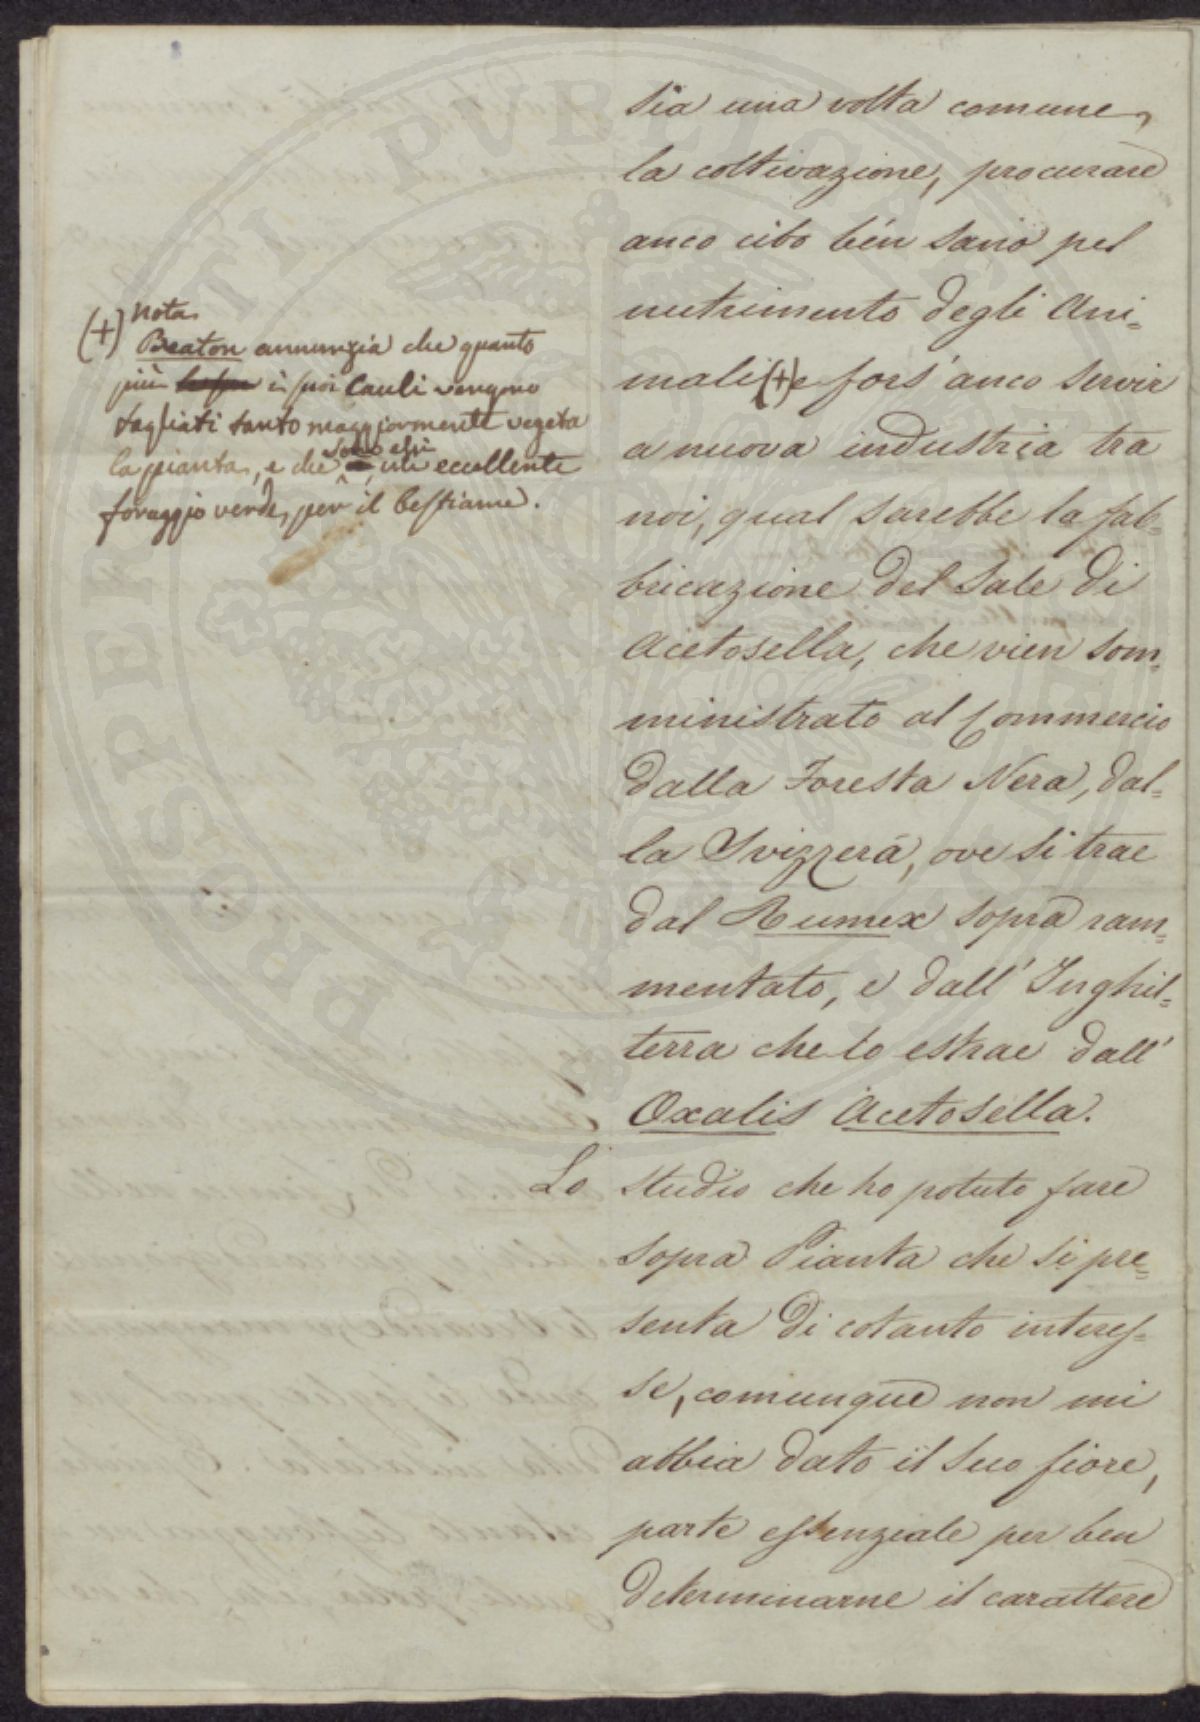 sia una volta comune,
la coltivazione, procurare
anco cibo bén sano pel
nutrimento degli Ani=
mali (+) e fors'anco servir
a nuova industria tra
noi, qual sarebbe la fab=
bricazione del Sale di
Acetosella, che vien som=
ministrato al Commercio
dalla Foresta Nera, dal=
la Svizzera, ove si trae
dal Rumex sopra ram=
mentato, e dall'Inghil=
terra che lo estrae dall'
Oxalis Acetosella.
Lo studio che ho potuto fare
sopra Pianta che si pre=
senta di cotanto interes=
se, comunque non mi
abbia dato il suo fiore,
parte essenziale per ben
determinarne il carattere
(+) Nota
Beaton annunzia che quanto
più i suoi cauli vengono
tagliati tanto maggiormente vegeta
la pianta, e che sono essi un eccellente
foraggio verde, per il bestiame.
PROSPERITATI PVBLICAE AVGENDAE